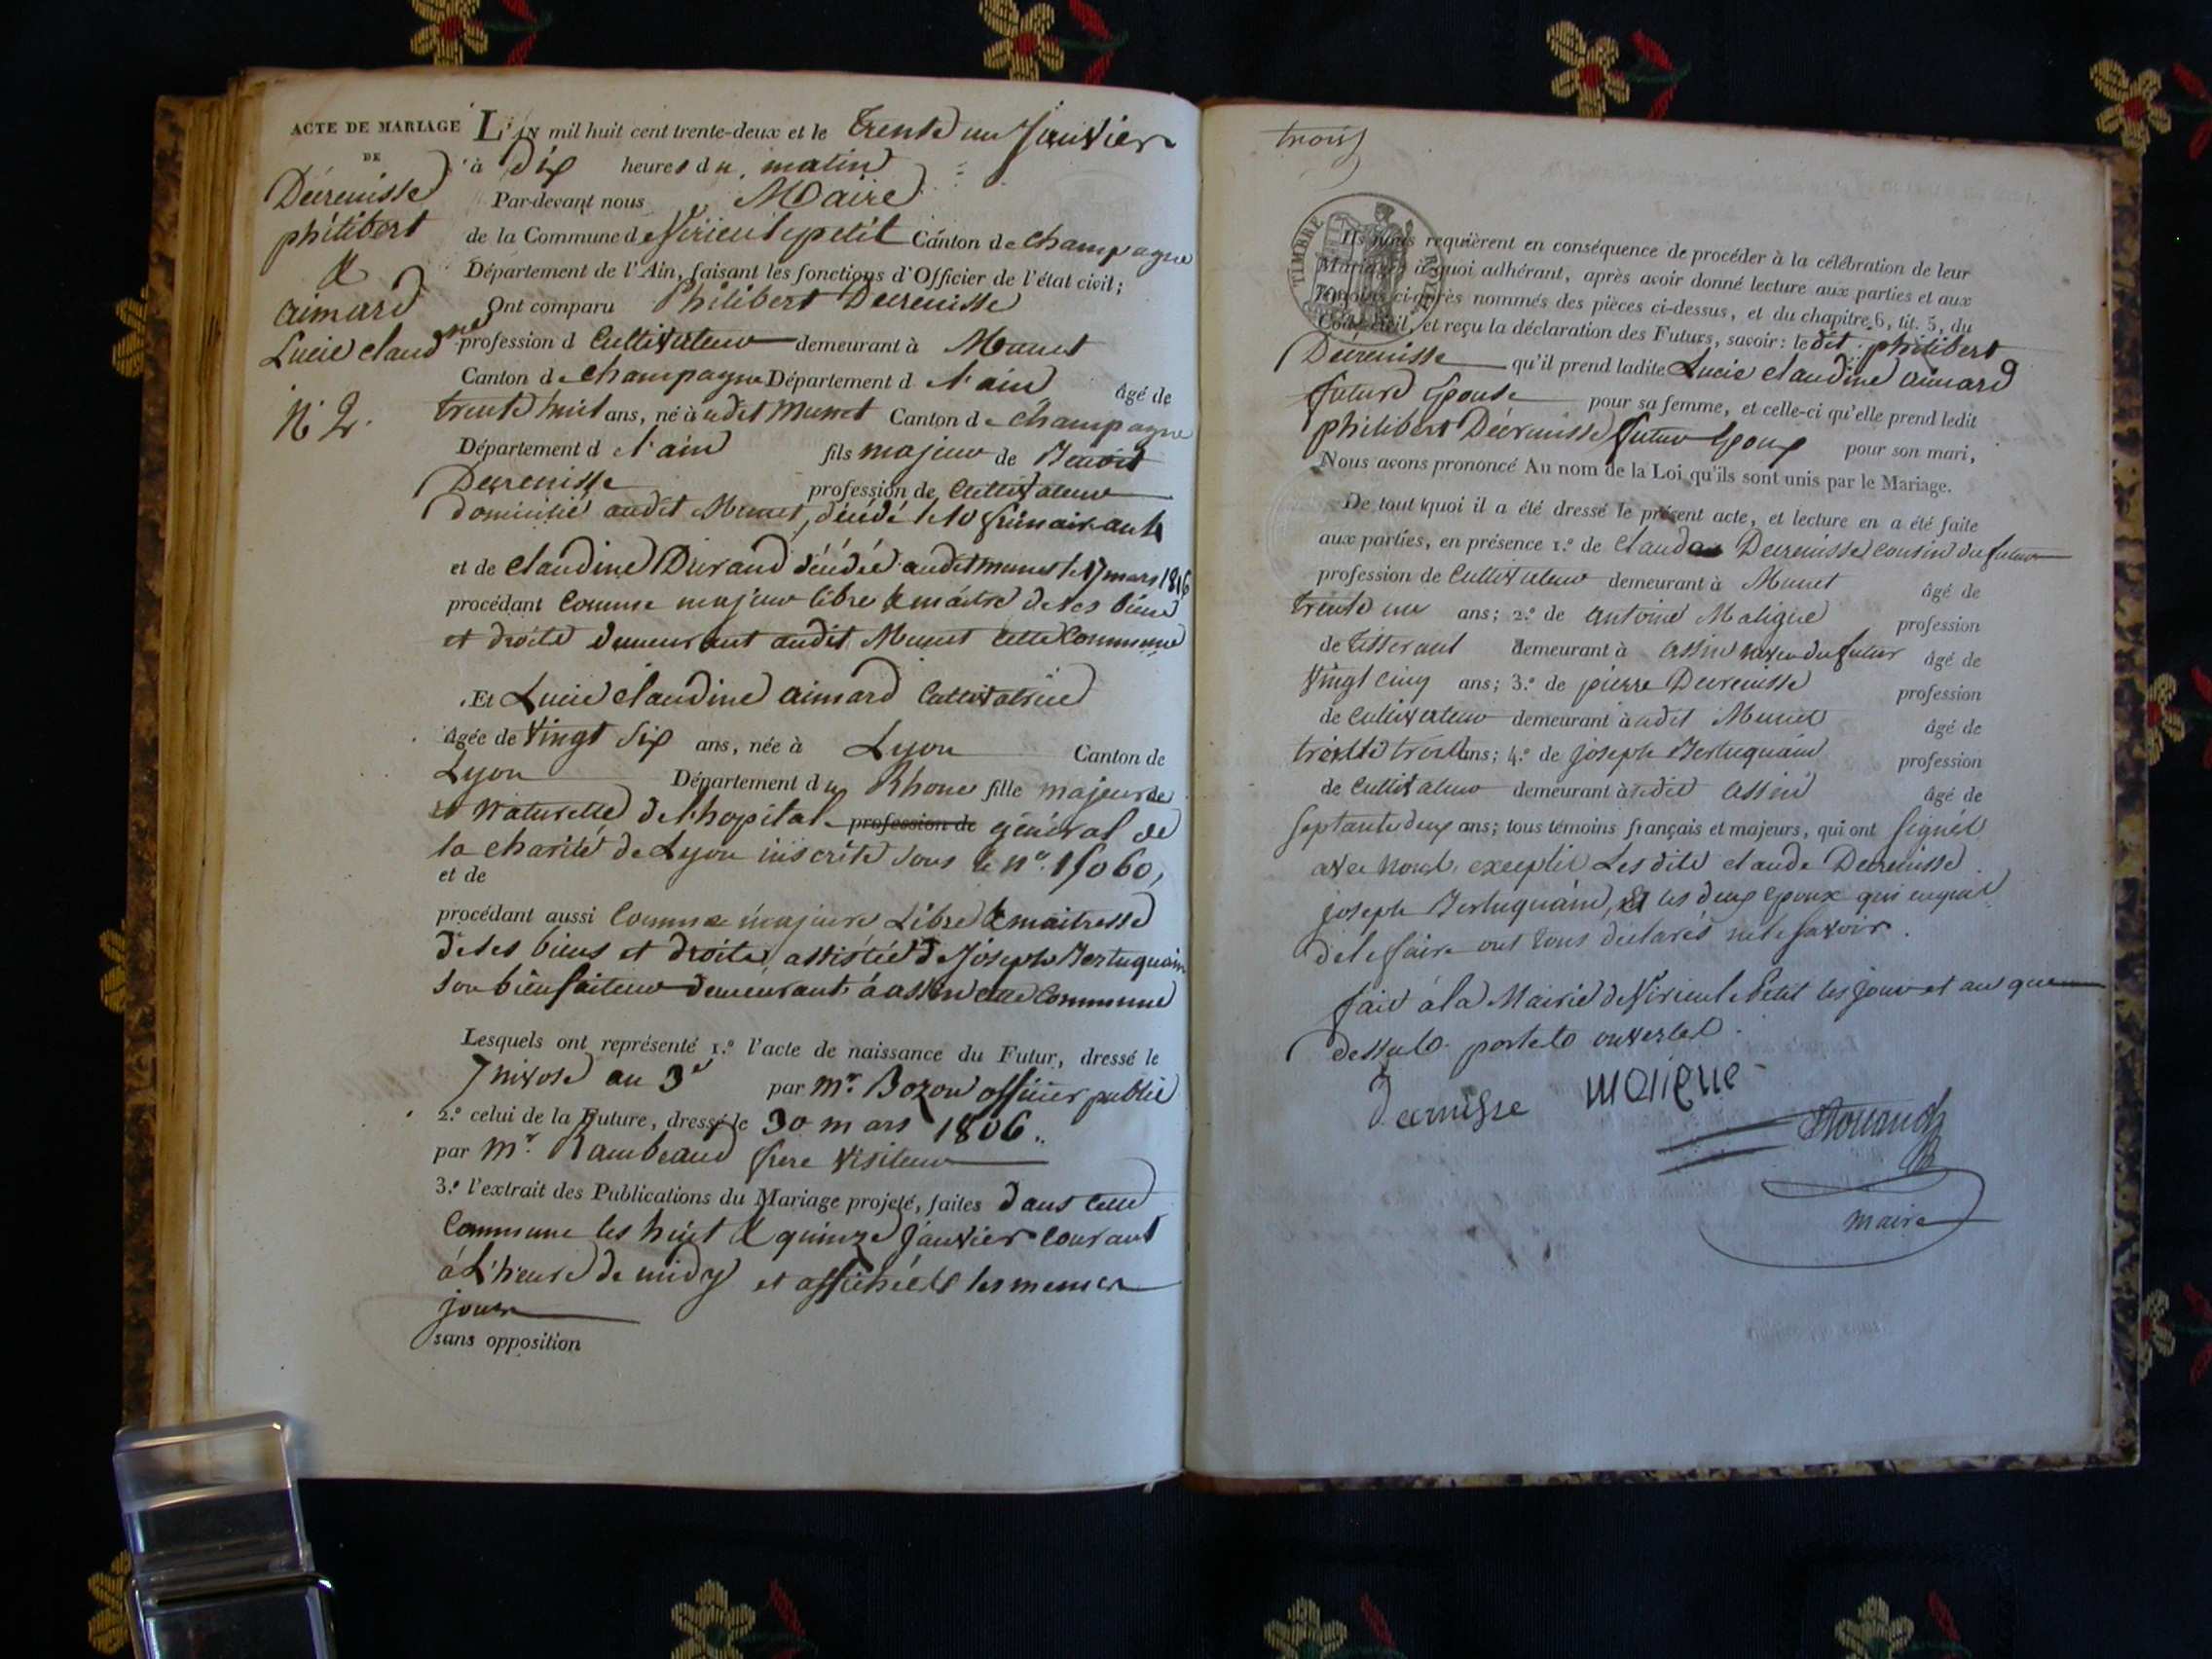 ACTE DE MARIAGE
DE
Décrenisse
philibert
&
aimard
Lucie claudne
N° 2.
L'AN mil huit cent trente-deux et le trente un Janvier
à Dix heures du matin
Par-devant nous Maire
de la Commune de Virieu le petit Canton de Champagne
Département de l'Ain, faisant les fonctions d'Officier de l'état civil;
Ont comparu Philibert Decrenisse
profession d Cultivateur demeurant à Munet
Canton de Champagne Département d l'ain âgé de
trente huit ans, né à udit Munet Canton de Champagne
Département d l'ain fils majeur de Benoit
Decrenisse profession de Cultivateur
domicilié audit Munet, décédé le 10 frimaire an
et de Claudine Durand décédée audit munet le 17 mars 1816
procédant Comme majeur libre & maitre de ses biens
et droits demeurant audit Munet cette Commune
Et Lucie Claudine aimard Cultivatrice
âgée de Vingt Six ans, née à Lyon Canton de
Lyon Département du Rhone fille majeure
et Naturelle de l'hopital profession de général de
la charité de Lyon inscrite sous le n° 15060,
et de
procédant aussi Comme majeure Libre & maitresse
de ses biens et droits, assistée de Joseph Bertuquain
Son bienfaiteur demeurant à assin cette Commune
Lesquels ont représenté 1.° l'acte de naissance du Futur, dressé le
7 nivose an 3e par Mr. Bozon officier public
2.° celui de la Future, dressé le 30 mars 1806.
par Mr. Rambeaud frere Visiteur
3.° l'extrait des Publications du Mariage projeté, faites dans cette
Commune les huit & quinze Janvier Courant
à L'heure de midy et affichées les memes
jours
sans opposition
trois
TIMBRE ROYAL
Ils nous requièrent en conséquence de procéder à la célébration de leur
Mariage; à quoi adhérant, après avoir donné lecture aux parties et aux
Témoins ci-après nommés des pièces ci-dessus, et du chapitre 6, tit. 5, du
Code civil, et reçu la déclaration des Futurs, savoir: le dit philibert
Décrenisse qu'il prend ladite Lucie Claudine aimard
future Epouse pour sa femme, et celle-ci qu'elle prend ledit
philibert Décrenisse futur Epoux pour son mari,
Nous avons prononcé Au nom de la Loi qu'ils sont unis par le Mariage.
De tout quoi il a été dressé le présent acte, et lecture en a été faite
aux parties, en présence 1.° de Claude Decrenisse cousin du futur
profession de Cultivateur demeurant à Munet âgé de
trente un ans; 2.° de antoine Maligue profession
de tisserant demeurant à assin neveu du futur âgé de
Vingt cinq ans; 3.° de pierre Decrenisse profession
de Cultivateur demeurant à udit Munet âgé de
trente trois ans; 4.° de Joseph Bertuquain profession
de Cultivateur demeurant à udit assin âgé de
Septante deux ans; tous témoins français et majeurs, qui ont Signés
avec nous, excepté Les dits claude Decrenisse
joseph Bertuquain, Et les deux Epoux qui enquis
de le faire ont tous déclarés ne le Savoir.
fait à la Mairie de Virieu le Petit les jour et an que
dessus portes ouvertes.
Decrnisse maligue
maire